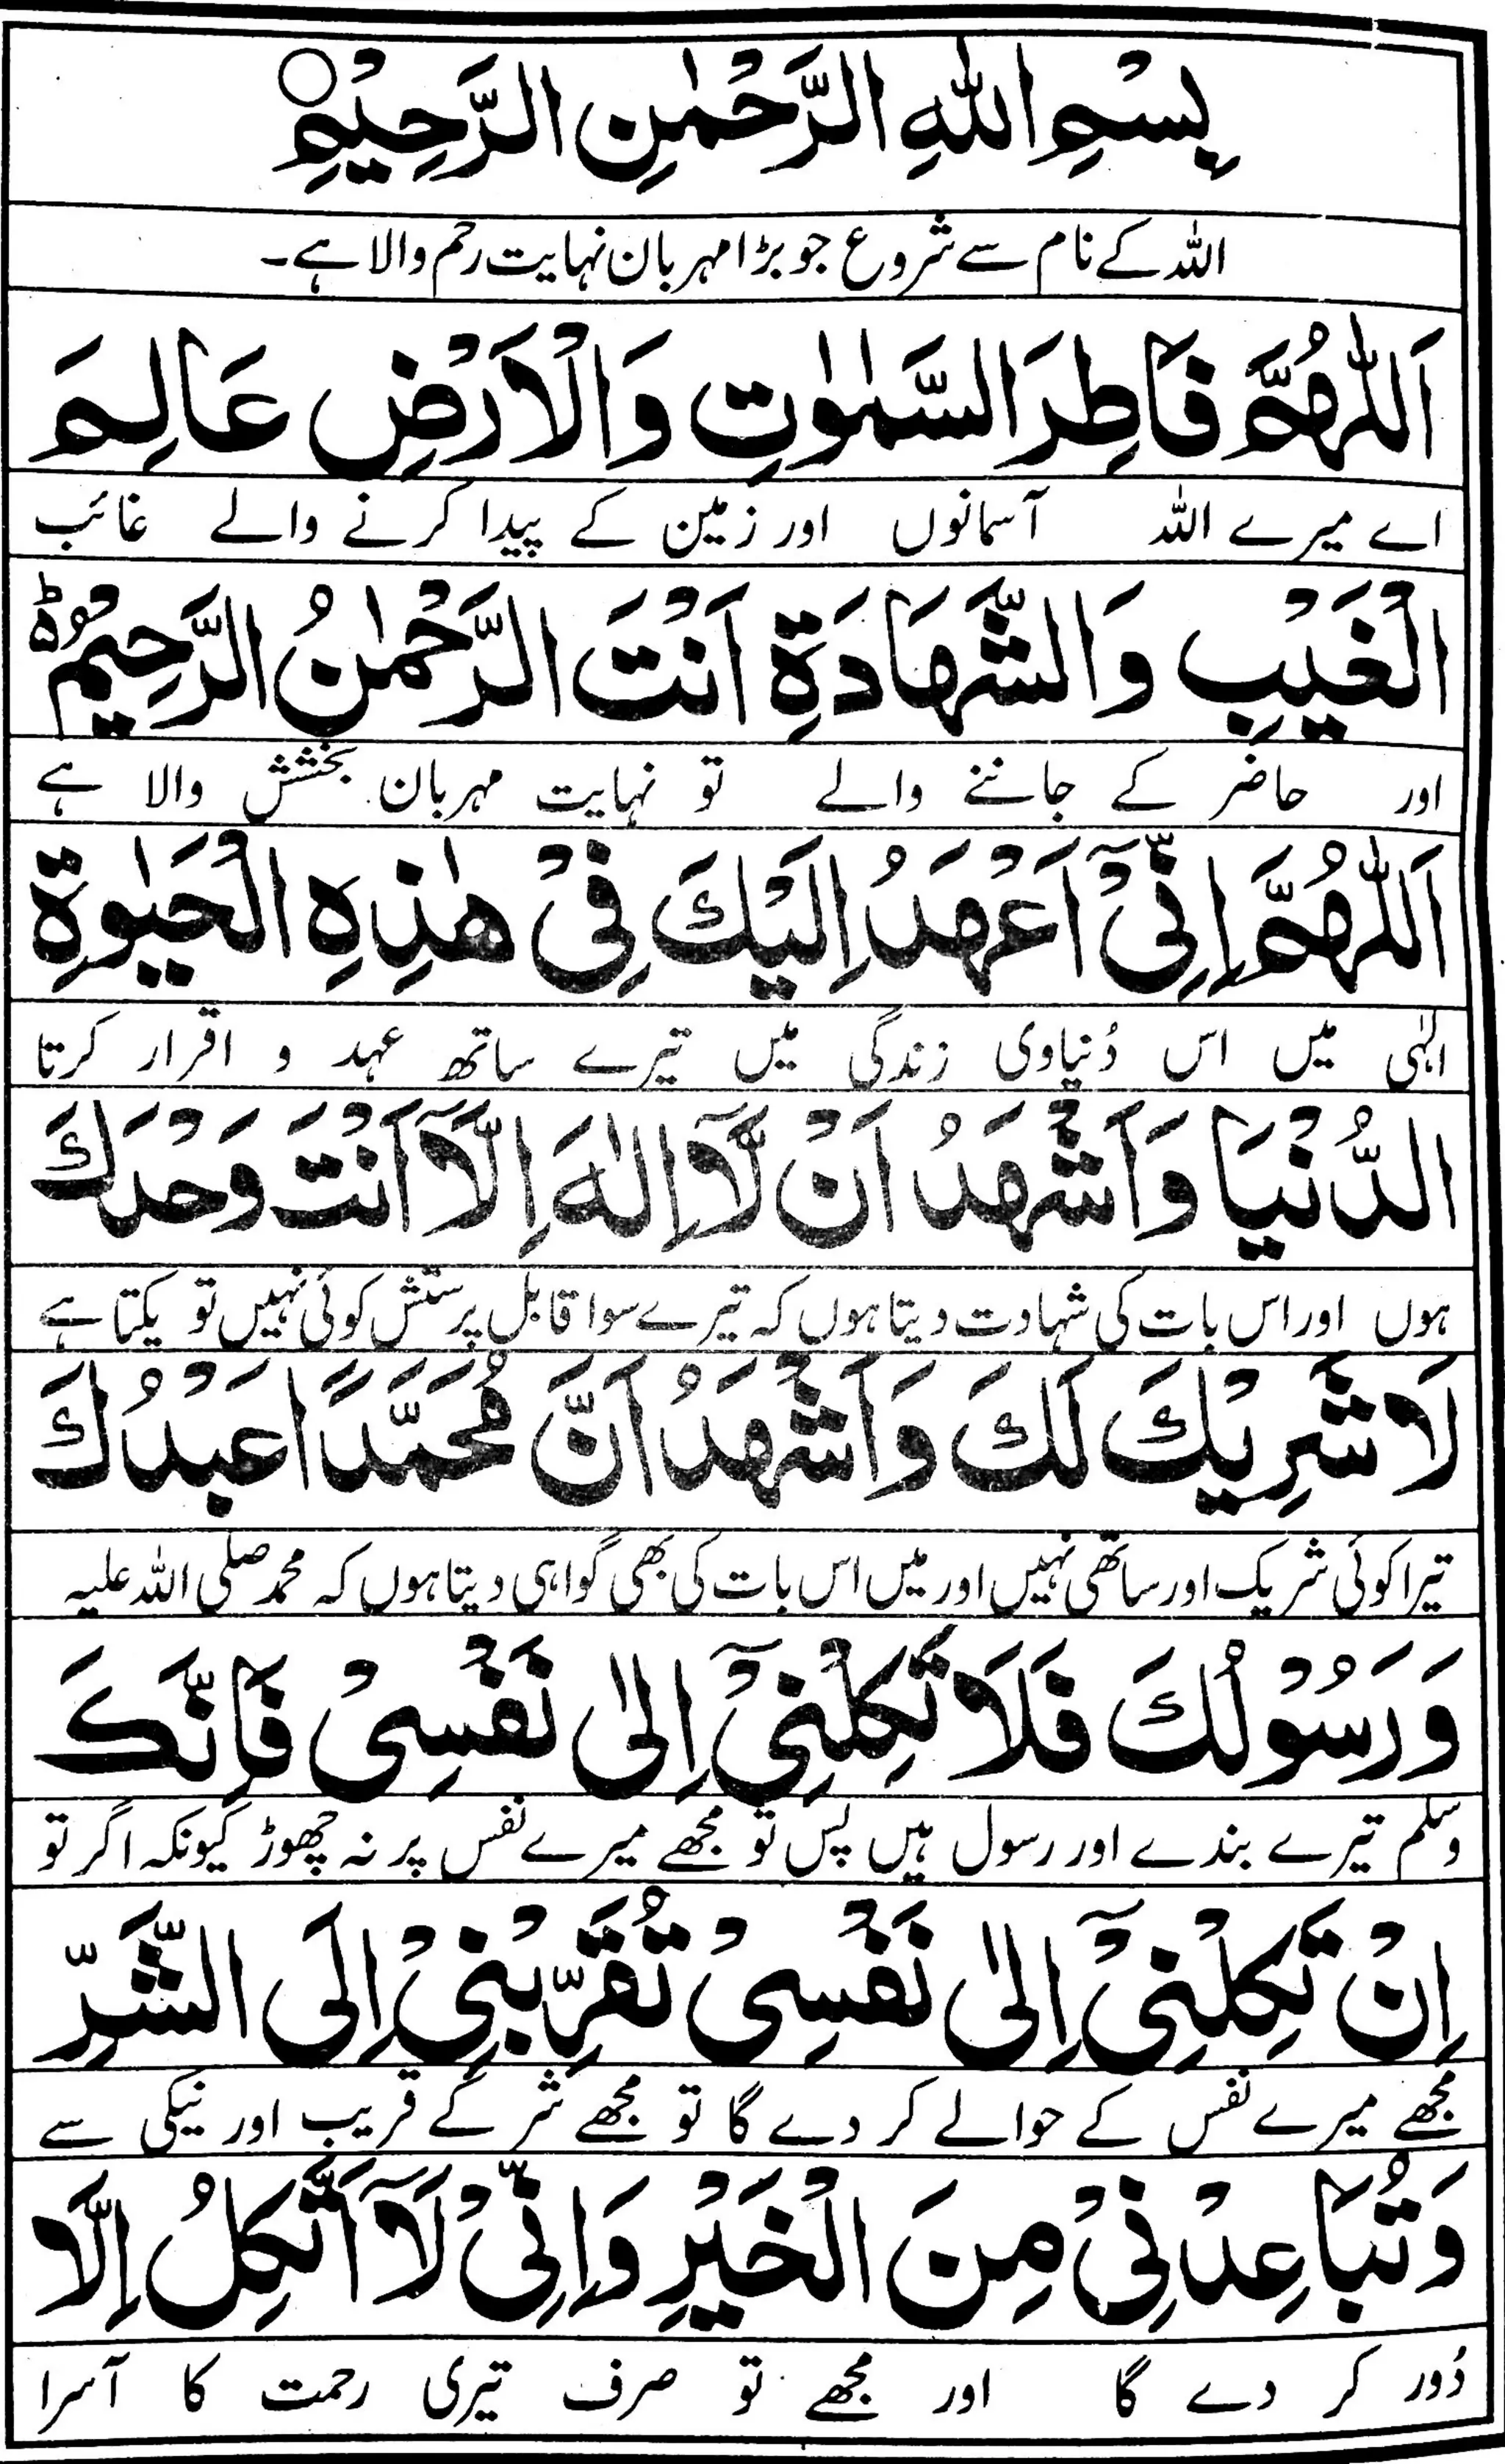 بِسْمِ اللّٰهِ الرَّحْمٰنِ الرَّحِيْمِ○
اللہ کے نام سے شروع جو بڑا مہربان نہایت رحم والا ہے۔
اَللّٰهُمَّ فَاطِرَ السَّمٰوٰتِ وَالْاَرْضِ عَالِمَ
اے میرے اللہ آسمانوں اور زمین کے پیدا کرنے والے غائب
الْغَيْبِ وَالشَّهَادَةِ اَنْتَ الرَّحْمٰنُ الرَّحِيْمُ ؕ
اور حاضر کے جاننے والے تو نہایت مہربان بخشش والا ہے
اَللّٰهُمَّ اِنِّيْٓ اَعْهَدُ اِلَيْكَ فِيْ هٰذِهِ الْحَيٰوةِ
الٰہی میں اس دُنیاوی زندگی میں تیرے ساتھ عہد و اقرار کرتا
الدُّنْيَا وَاَشْهَدُ اَنْ لَّآ اِلٰهَ اِلَّآ اَنْتَ وَحْدَكَ
ہوں اور اس بات کی شہادت دیتا ہوں کہ تیرے سوا قابل پرستش کوئی نہیں تو یکتا ہے
لَا شَرِيْكَ لَكَ وَاَشْهَدُ اَنَّ مُحَمَّدًا عَبْدُكَ
تیرا کوئی شریک اور ساتھی نہیں اور میں اس بات کی بھی گواہی دیتا ہوں کہ محمد صلی اللہ علیہ
وَرَسُوْلُكَ فَلَا تَكِلْنِيْٓ اِلٰى نَفْسِيْ فَاِنَّكَ
وسلم تیرے بندے اور رسول ہیں پس تو مجھے میرے نفس پر نہ چھوڑ کیونکہ اگر تو
اِنْ تَكِلْنِيْٓ اِلٰى نَفْسِيْ تُقَرِّبْنِيْ اِلَى الشَّرِّ
مجھے میرے نفس کے حوالے کر دے گا تو مجھے شر کے قریب اور نیکی سے
وَتُبَاعِدْنِيْ مِنَ الْخَيْرِ وَاِنِّيْ لَآ اَتَّكِلُ اِلَّا
دُور کر دے گا اور مجھے تو صرف تیری رحمت کا آسرا